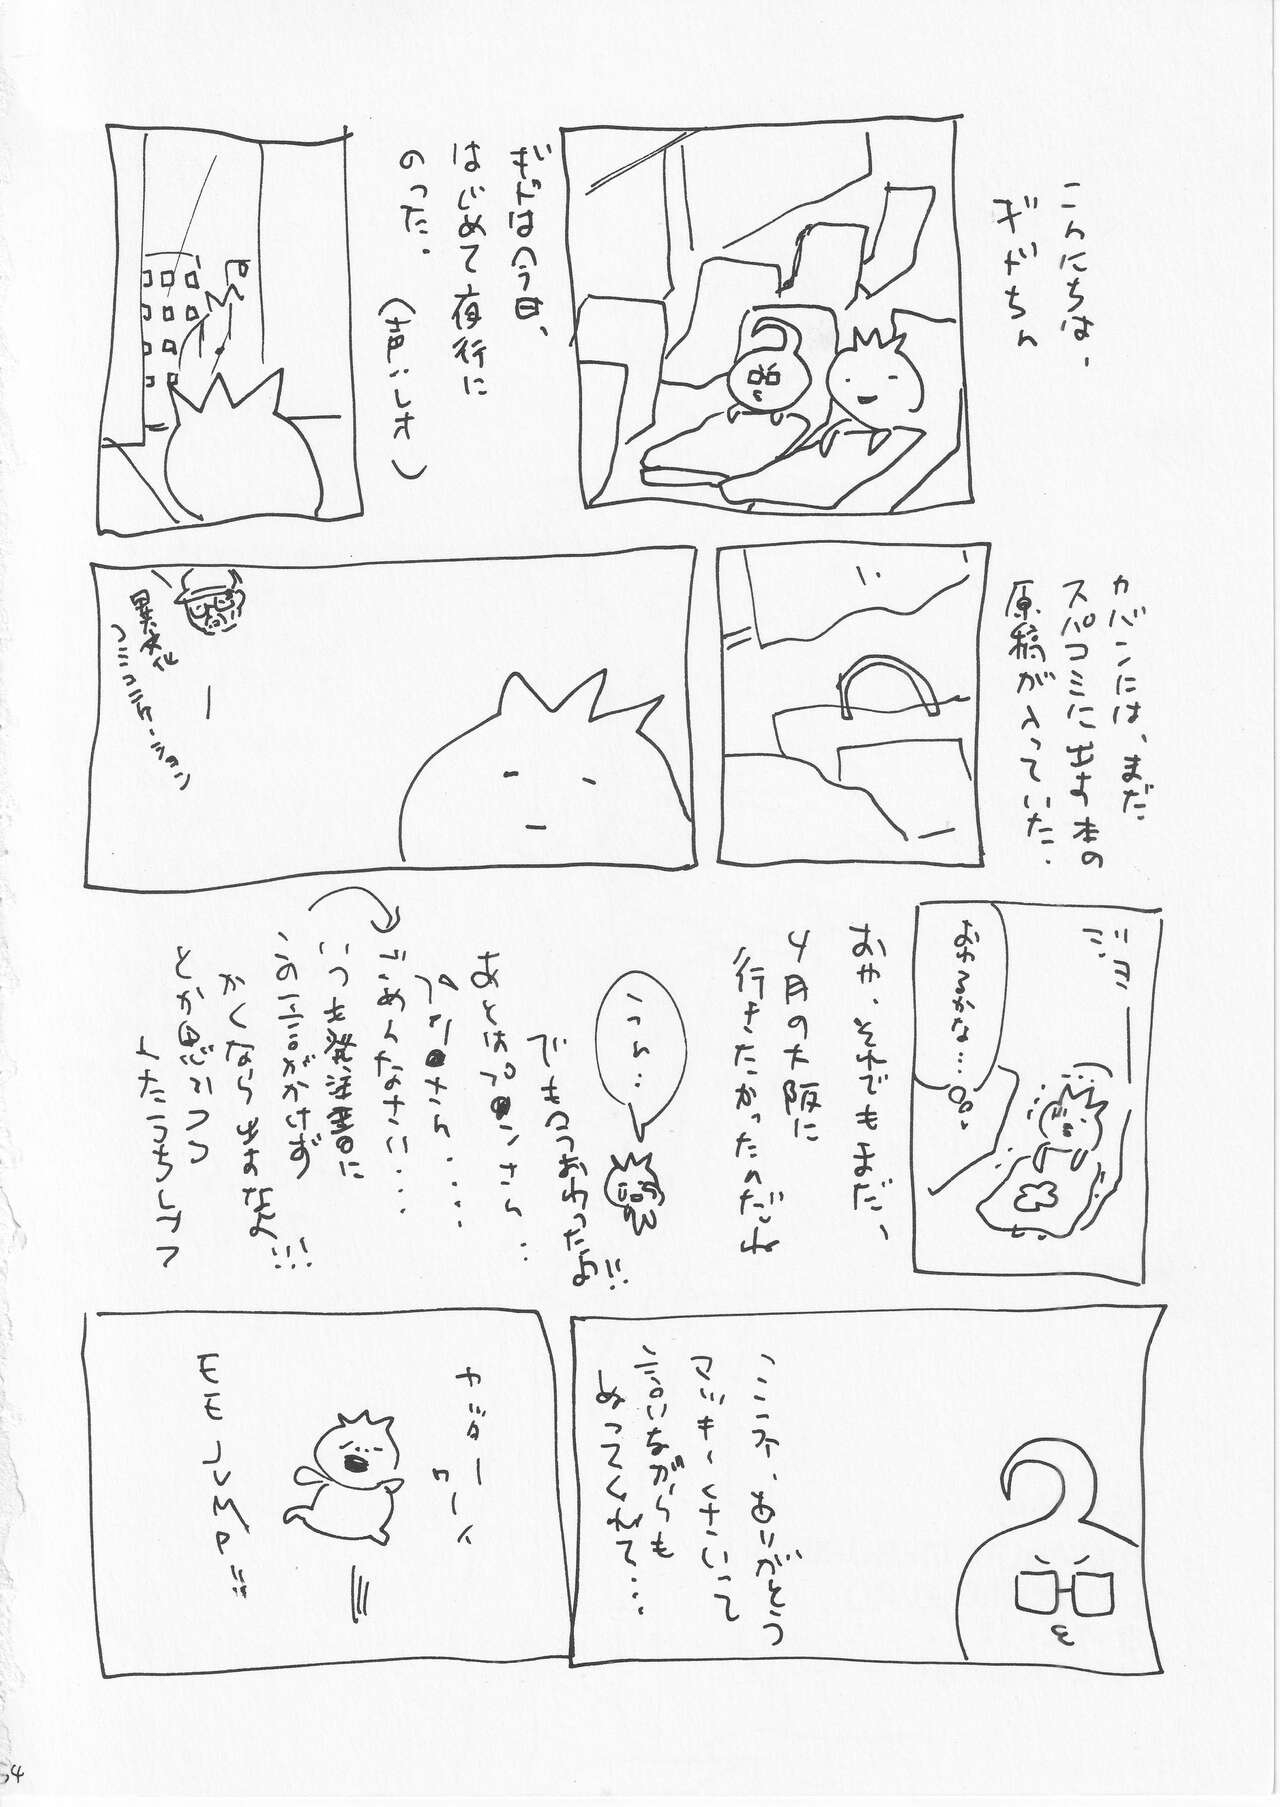 こんにちは、
ギドちん
ギドは今日、
はじめて夜行に
のった。
(声:レオ)
カバンには、まだ
スパコミに出す本の
原稿が入っていた。
異文化
コミュニケーション
ジョー
おわるかな…
おや、それでもまだ、
4月の大阪に
行きたかったのだね
うん…
でもおわったよ!!
ごめんなさい…
いつも発注書に
この一言がかけず
かくなら出すなよ!!!
とか思いつつ
ココア、ありがとう
マッキーくさいって
言いながらも
ぬってくれて…
ヤッター
ワーイ
EE JUMP!!
54